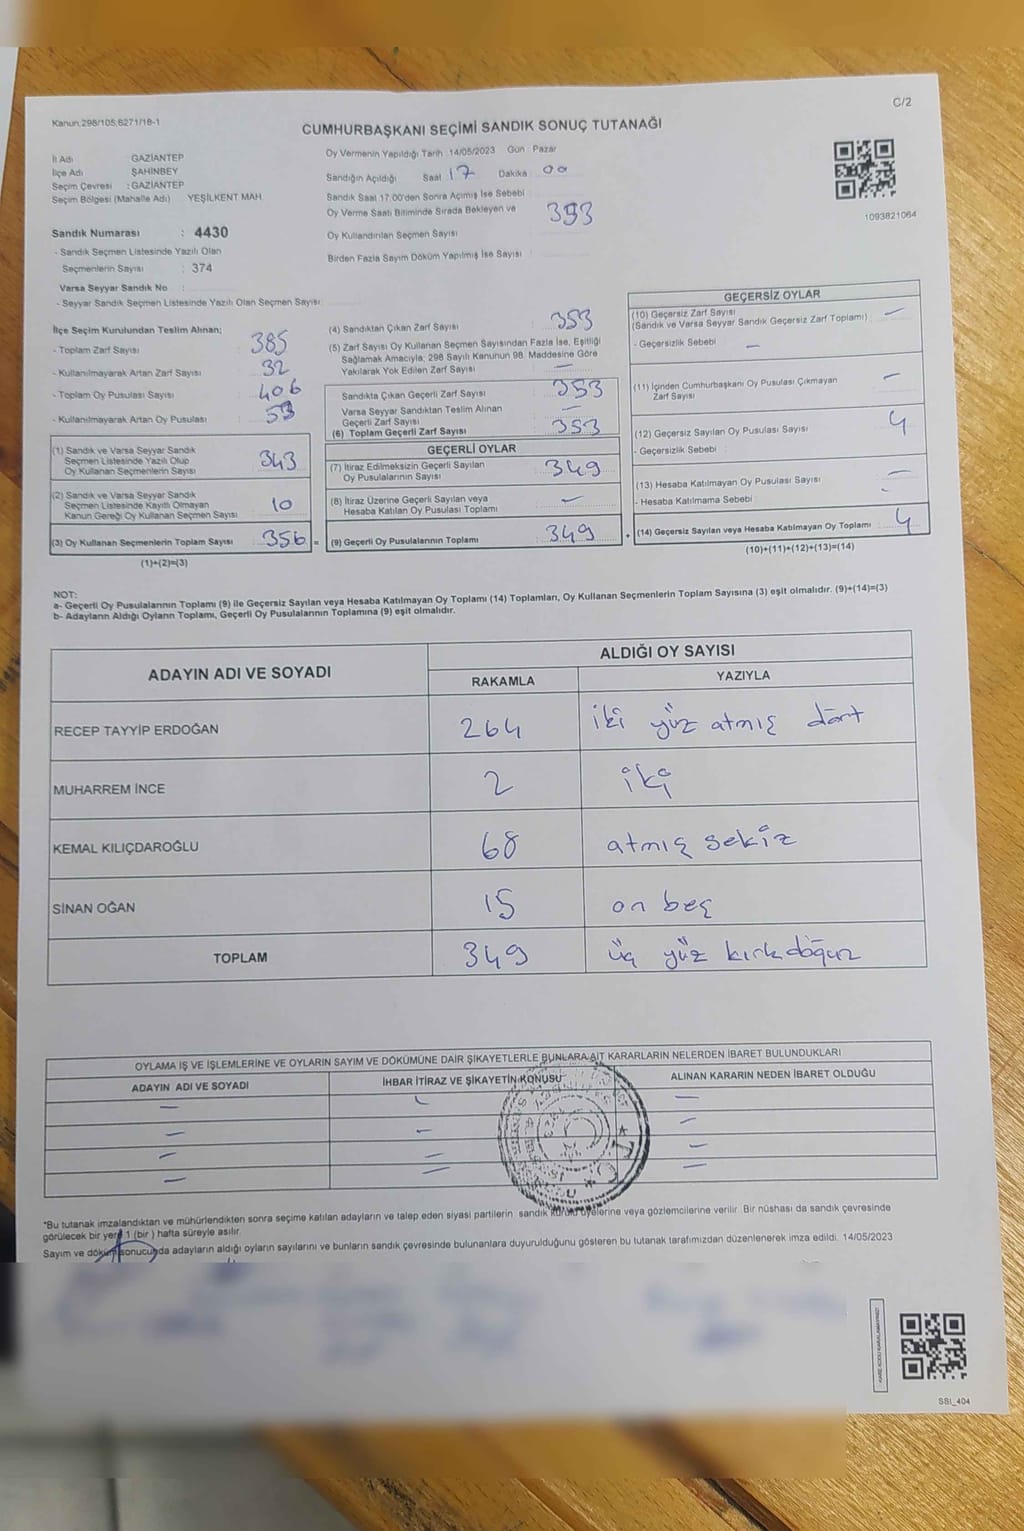 C/2
Kanun.298/105,6271/18-1
CUMHURBAŞKANI SEÇİMİ SANDIK SONUÇ TUTANAĞI
İl Adı GAZİANTEP
İlçe Adı ŞAHİNBEY
Seçim Çevresi : GAZİANTEP
Seçim Bölgesi (Mahalle Adı) YEŞİLKENT MAH.
Sandık Numarası : 4430
- Sandık Seçmen Listesinde Yazılı Olan
Seçmenlerin Sayısı : 374
Varsa Seyyar Sandık No :
- Seyyar Sandık Seçmen Listesinde Yazılı Olan Seçmen Sayısı:
Oy Vermenin Yapıldığı Tarih :14/05/2023 Gün : Pazar
Sandığın Açıldığı Saat 17 Dakika 00
Sandık Saat 17:00'den Sonra Açımış İse Sebebi
Oy Verme Saati Bitiminde Sırada Bekleyen ve
Oy Kullandırılan Seçmen Sayısı 353
Birden Fazla Sayım Döküm Yapılmış İse Sayısı :
1093821064
İlçe Seçim Kurulundan Teslim Alınan;
- Toplam Zarf Sayısı : 385
- Kullanılmayarak Artan Zarf Sayısı : 32
- Toplam Oy Pusulası Sayısı : 406
- Kullanılmayarak Artan Oy Pusulası : 53
(1) Sandık ve Varsa Seyyar Sandık
Seçmen Listesinde Yazılı Olup
Oy Kullanan Seçmenlerin Sayısı 343
(2) Sandık ve Varsa Seyyar Sandık
Seçmen Listesinde Kayıtlı Olmayan
Kanun Gereği Oy Kullanan Seçmen Sayısı 10
(3) Oy Kullanan Seçmenlerin Toplam Sayısı : 356 =
(1)+(2)=(3)
(4) Sandıktan Çıkan Zarf Sayısı : 353
(5) Zarf Sayısı Oy Kullanan Seçmen Sayısından Fazla İse, Eşitliği
Sağlamak Amacıyla; 298 Sayılı Kanunun 98. Maddesine Göre
Yakılarak Yok Edilen Zarf Sayısı : —
Sandıkta Çıkan Geçerli Zarf Sayısı : 353
Varsa Seyyar Sandıktan Teslim Alınan
Geçerli Zarf Sayısı : —
(6) Toplam Geçerli Zarf Sayısı : 353
GEÇERLİ OYLAR
(7) İtiraz Edilmeksizin Geçerli Sayılan
Oy Pusulalarının Sayısı : 349
(8) İtiraz Üzerine Geçerli Sayılan veya
Hesaba Katılan Oy Pusulası Toplamı : —
(9) Geçerli Oy Pusulalarının Toplamı : 349
GEÇERSİZ OYLAR
(10) Geçersiz Zarf Sayısı
(Sandık ve Varsa Seyyar Sandık Geçersiz Zarf Toplamı) : —
- Geçersizlik Sebebi : —
(11) İçinden Cumhurbaşkanı Oy Pusulası Çıkmayan
Zarf Sayısı : —
(12) Geçersiz Sayılan Oy Pusulası Sayısı : 4
- Geçersizlik Sebebi :
(13) Hesaba Katılmayan Oy Pusulası Sayısı : —
- Hesaba Katılmama Sebebi :
+ (14) Geçersiz Sayılan veya Hesaba Katılmayan Oy Toplamı : 4
(10)+(11)+(12)+(13)=(14)
NOT:
a- Geçerli Oy Pusulalarının Toplamı (9) ile Geçersiz Sayılan veya Hesaba Katılmayan Oy Toplamı (14) Toplamları, Oy Kullanan Seçmenlerin Toplam Sayısına (3) eşit olmalıdır. (9)+(14)=(3)
b- Adayların Aldığı Oyların Toplamı, Geçerli Oy Pusulalarının Toplamına (9) eşit olmalıdır.
ADAYIN ADI VE SOYADI ALDIĞI OY SAYISI
RAKAMLA YAZIYLA
RECEP TAYYİP ERDOĞAN 264 iki yüz atmış dört
MUHARREM İNCE 2 iki
KEMAL KILIÇDAROĞLU 68 atmış sekiz
SİNAN OĞAN 15 on beş
TOPLAM 349 üç yüz kırk doğuz
OYLAMA İŞ VE İŞLEMLERİNE VE OYLARIN SAYIM VE DÖKÜMÜNE DAİR ŞİKAYETLERLE BUNLARA AİT KARARLARIN NELERDEN İBARET BULUNDUKLARI
ADAYIN ADI VE SOYADI İHBAR İTİRAZ VE ŞİKAYETİN KONUSU ALINAN KARARIN NEDEN İBARET OLDUĞU
*Bu tutanak imzalandıktan ve mühürlendikten sonra seçime katılan adayların ve talep eden siyasi partilerin sandık kurulu üyelerine veya gözlemcilerine verilir. Bir nüshası da sandık çevresinde
görülecek bir yere 1 (bir ) hafta süreyle asılır.
Sayım ve döküm sonucunda adayların aldığı oyların sayılarını ve bunların sandık çevresinde bulunanlara duyurulduğunu gösteren bu tutanak tarafımızdan düzenlenerek imza edildi. 14/05/2023
SBI_404